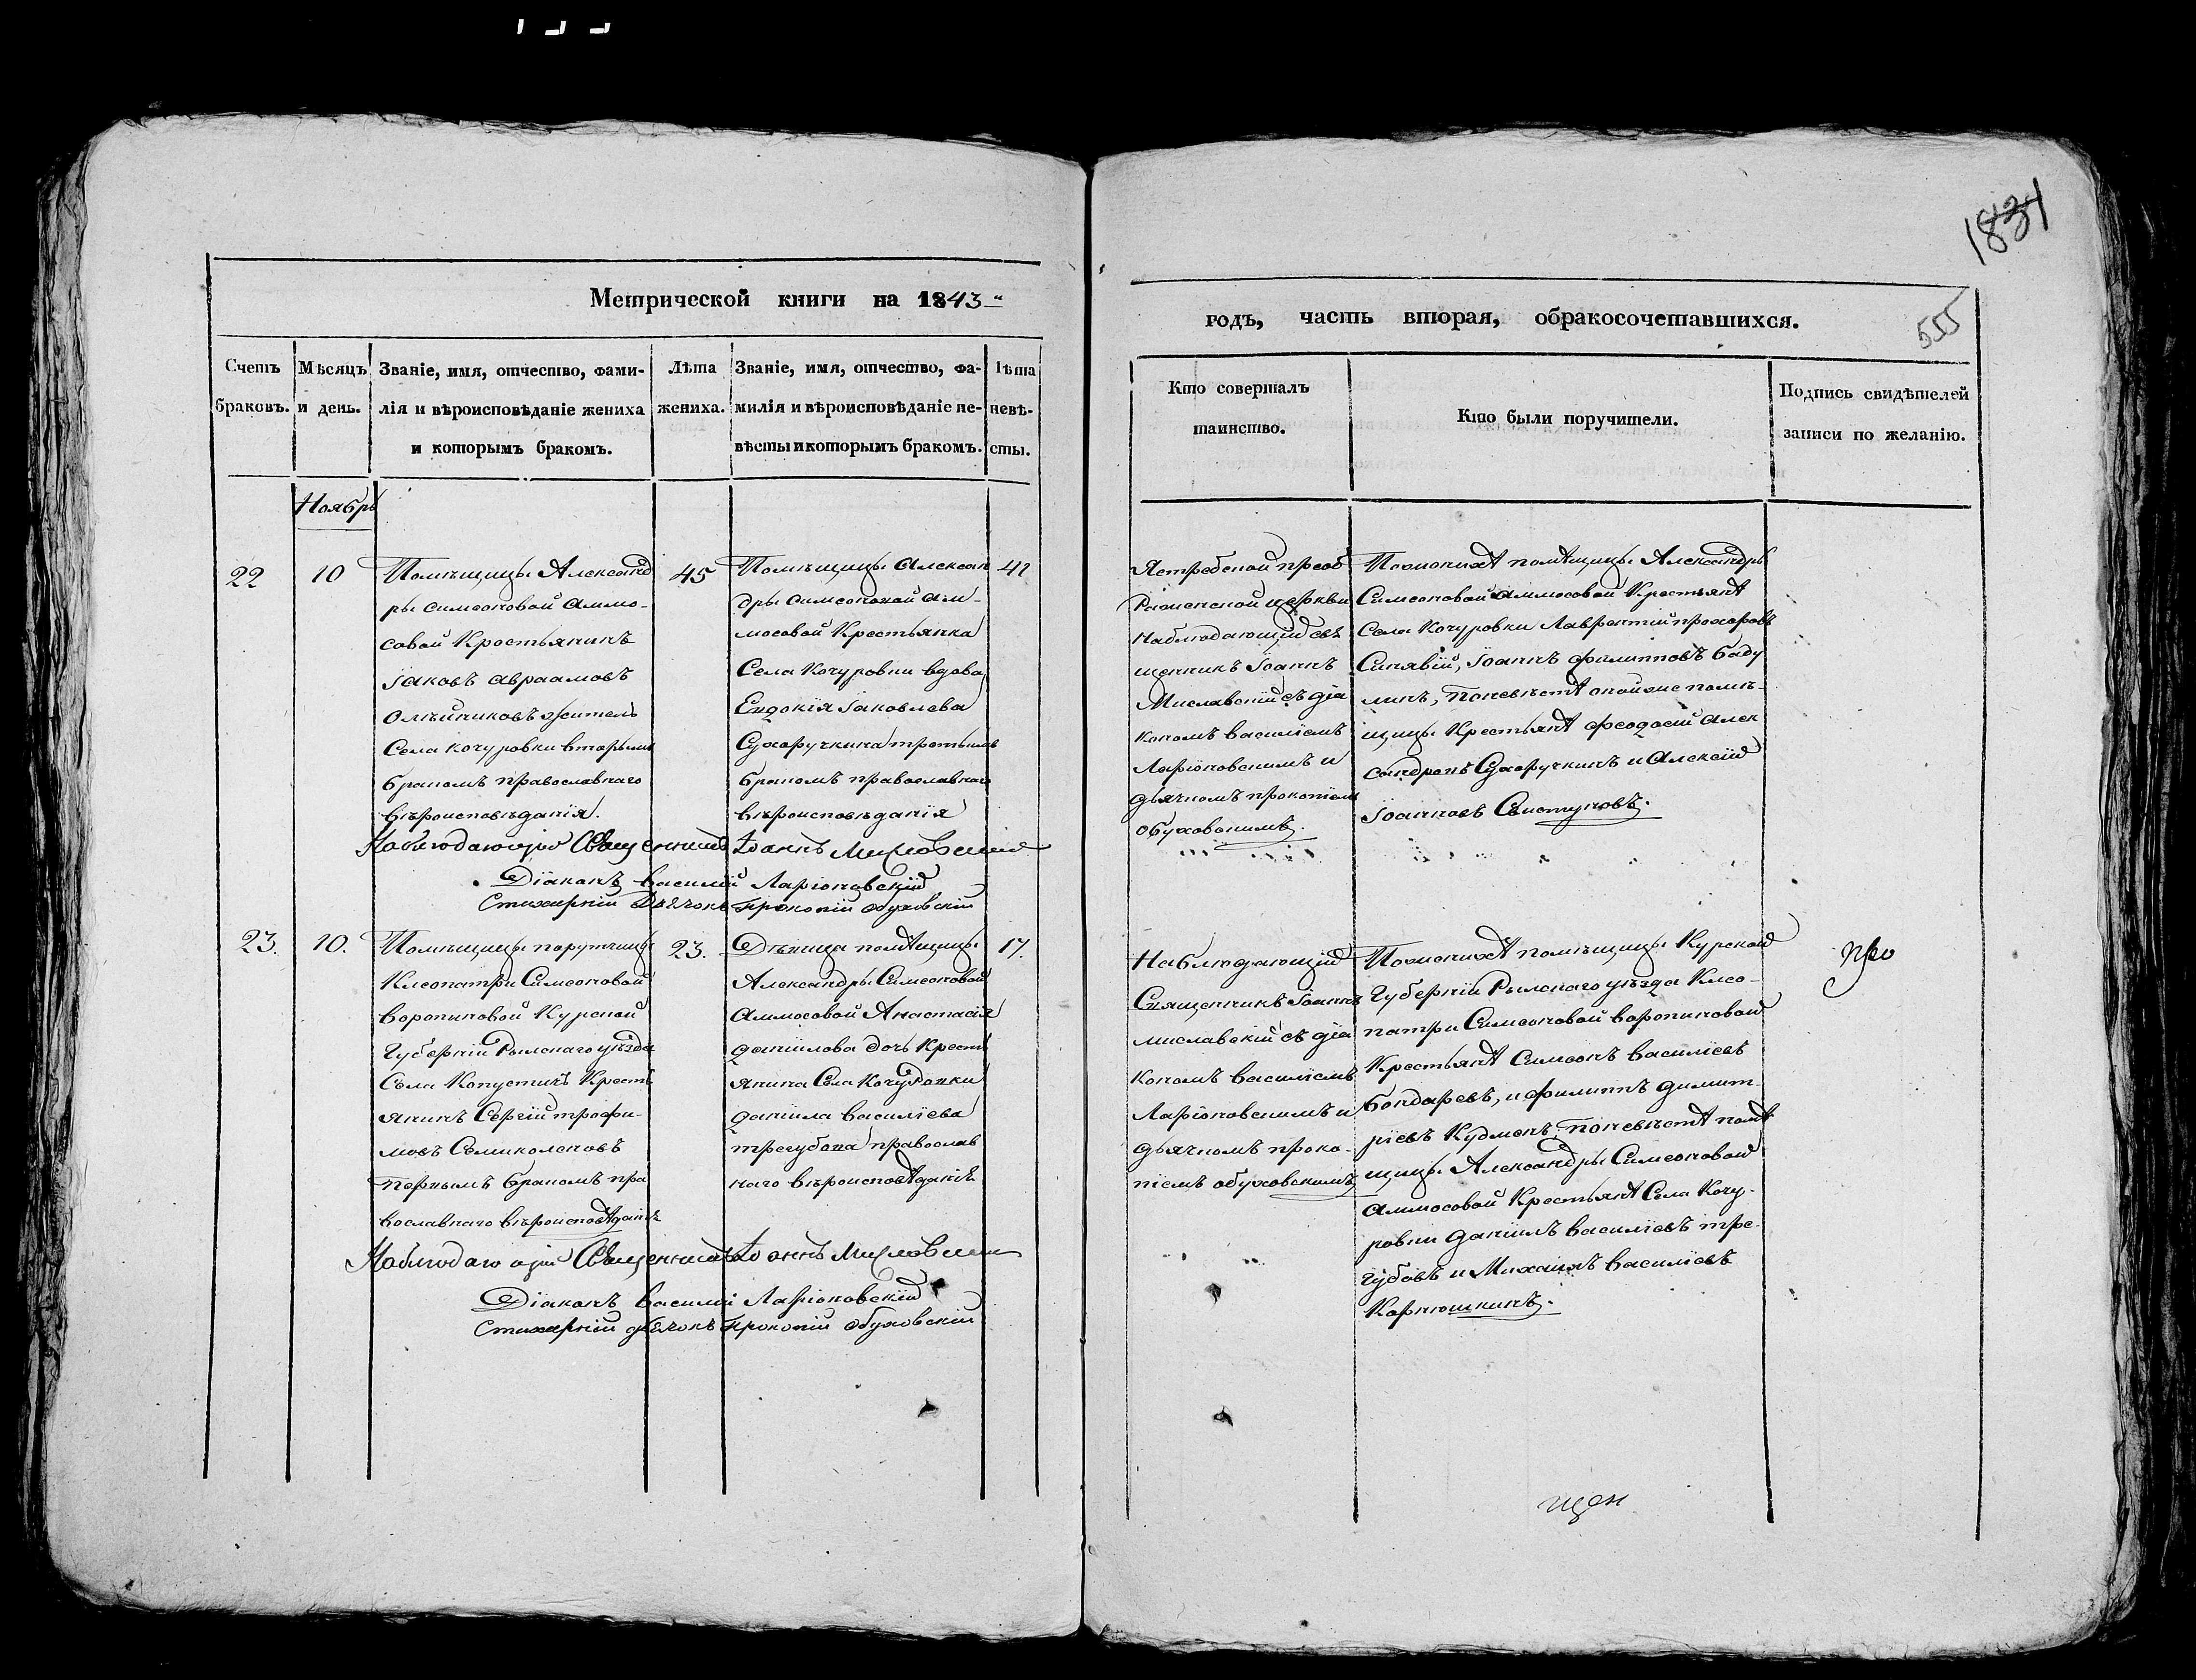 1834
Метрической книги на 1843
годъ, часть вторая, обракосочетавшихся.
555
Счетъ браковъ.
Мѣсяцъ и день.
Званіе, имя, отчество, фами-
лія и вѣроисповѣданіе жениха
и которымъ бракомъ.
Лѣта
жениха.
Званіе, имя, отчество, фа-
милія и вѣроисповѣданіе не-
вѣсты и которымъ бракомъ.
Лѣта
невѣ-
сты.
Кто совершалъ
таинство.
Кто были поручители.
Подпись свидѣтелей
записи по желанію.
Ноябрь
22
10
Помѣщицы Александ
ры Симеоновой Аммо-
совой Крестьянинъ
Іаковъ Авраамовъ
Олѣйниковъ житель
Села Кочуровки вторымъ
бракомъ православнаго
вѣроисповѣданія.
45
Помѣщицы Алексан
дры Симеоновой Ам-
мосовой Крестьянка
Села Кочуровки вдова
Евдокія Іаковлева
Сухоручкина третьимъ
бракомъ православнаго
вѣроисповѣданія
41
Ястребской преоб
раженской церкви
Наблюдающій свя
щенникъ Іоаннъ
Миславскій съ діа
кономъ Василіемъ
Ларіоновскимъ и
дьячкомъ Прокопіемъ
Обуховскимъ.
По женихѣ помѣщицы Александры
Симеоновой Аммосовой Крестьянѣ
Села Кочуровки Лаврентій Прохоровъ
Синявій, Іоаннъ Филипповъ Баду
линъ, По невѣстѣ оной же помѣ-
щицы Крестьянѣ Феодосій Алек
сандровъ Сухоручкинъ и Алексій
Іоанновъ Свистуновъ.
Наблюдающій Священникъ Іоаннъ Миславскій
Діаконъ Василій Ларіоновскій
Стихарній Дьячокъ Прокопій Обуховскій
23.
10.
Помѣщицы порутчицы
Клеопатры Симеоновой
Воропановой Курской
Губерніи Рыльскаго уѣзда
Села Капустичъ Кресть
янинъ Сергій Трофи-
мовъ Семиколеновъ
первымъ бракомъ пра
вославнаго вѣроисповѣданія
23.
Дѣвица помѣщицы
Александры Симеоновой
Аммосовой Анастасія
Даніилова дочь Кресть
янина Села Кочуровки
Даніила Василіева
Трегубова православ
наго вѣроисповѣданія
17.
Наблюдающій
Священникъ Іоаннъ
Миславскій съ діа
кономъ Василіемъ
Ларіоновскимъ и
дьячкомъ Проко-
піемъ Обуховскимъ
По женихѣ помѣщицы Курской
Губерніи Рыльскаго уѣзда Клео-
патры Симеоновой Воропановой
Крестьянѣ Симеонъ Василіевъ
Бондаревъ, и Филиппъ Димит-
ріевъ По невѣстѣ помѣ
щицы Александры Симеоновой
Аммосовой Крестьянѣ Села Кочу-
ровки Даніилъ Василіевъ Тре-
губовъ и Михаилъ Василіевъ
Карнюшкинъ.
Наблюдающій Священникъ Іоаннъ Миславскій
Діаконъ Василій Ларіоновскій
Стихарній дьячокъ Прокопій Обуховскій
щен